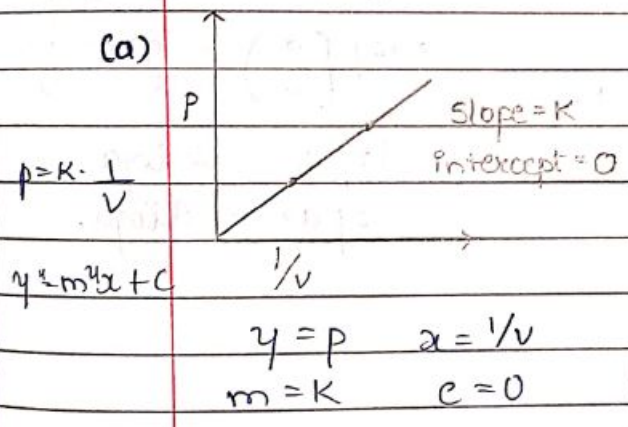 (a)
P
slope = K
intercept = 0
p = K · 1/V
y = mx + c
1/v
y = p x = 1/v
m = K c = 0